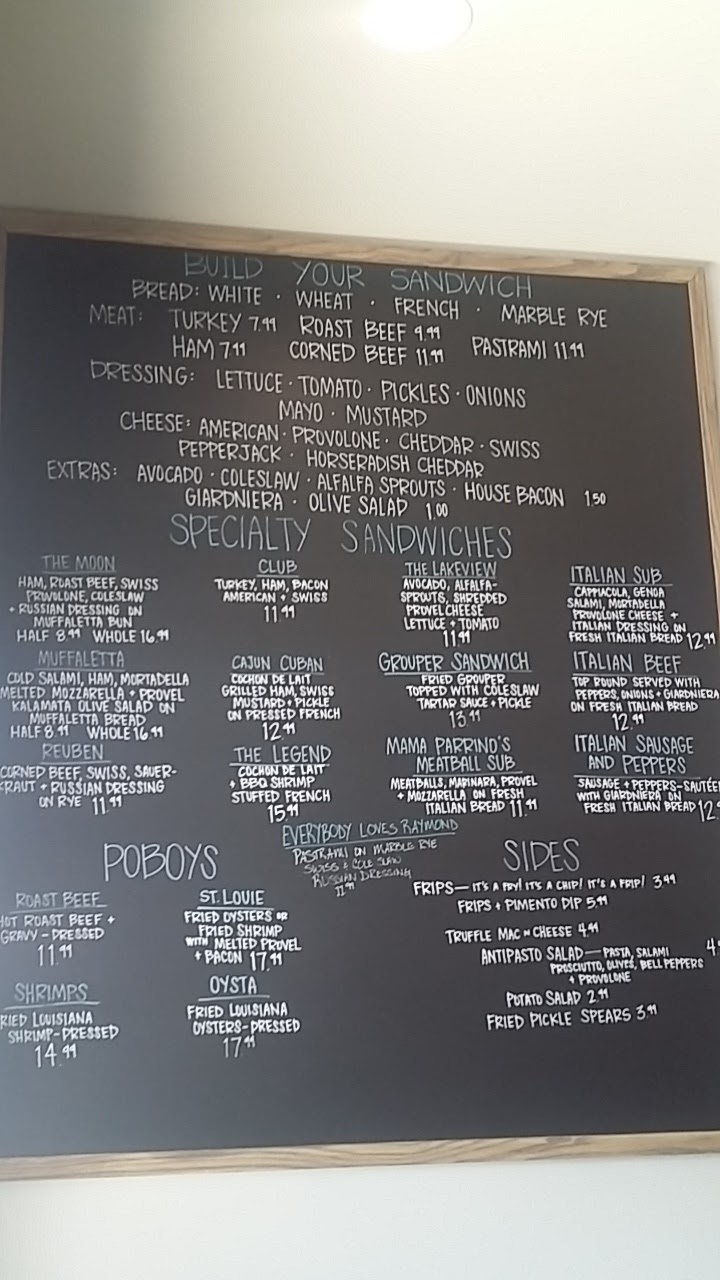 BUILD YOUR SANDWICH
BREAD: WHITE · WHEAT · FRENCH · MARBLE RYE
MEAT: TURKEY 7.99 ROAST BEEF 9.99
HAM 7.99 CORNED BEEF 11.99 PASTRAMI 11.99
DRESSING: LETTUCE · TOMATO · PICKLES · ONIONS
MAYO · MUSTARD
CHEESE: AMERICAN · PROVOLONE · CHEDDAR · SWISS
PEPPERJACK · HORSERADISH CHEDDAR
EXTRAS: AVOCADO · COLESLAW · ALFALFA SPROUTS · HOUSE BACON 1.50
GIARDNIERA · OLIVE SALAD 1.00
SPECIALTY SANDWICHES
THE MOON
HAM, ROAST BEEF, SWISS
PROVOLONE, COLESLAW
+ RUSSIAN DRESSING ON
MUFFALETTA BUN
HALF 8.99 WHOLE 16.99
CLUB
TURKEY, HAM, BACON
AMERICAN + SWISS
11.99
THE LAKEVIEW
AVOCADO, ALFALFA-
SPROUTS, SHREDDED
PROVEL CHEESE
LETTUCE + TOMATO
11.99
ITALIAN SUB
CAPPIACOLA, GENOA
SALAMI, MORTADELLA
PROVOLONE CHEESE +
ITALIAN DRESSING ON
FRESH ITALIAN BREAD 12.99
MUFFALETTA
COLD SALAMI, HAM, MORTADELLA
MELTED MOZZARELLA + PROVEL
KALAMATA OLIVE SALAD ON
MUFFALETTA BREAD
HALF 8.99 WHOLE 16.99
CAJUN CUBAN
COCHON DE LAIT
GRILLED HAM, SWISS
MUSTARD + PICKLE
ON PRESSED FRENCH
12.99
GROUPER SANDWICH
FRIED GROUPER
TOPPED WITH COLESLAW
TARTAR SAUCE + PICKLE
13.99
ITALIAN BEEF
TOP ROUND SERVED WITH
PEPPERS, ONIONS + GIARDNIERA
ON FRESH ITALIAN BREAD
12.99
REUBEN
CORNED BEEF, SWISS, SAUER-
KRAUT + RUSSIAN DRESSING
ON RYE 11.99
THE LEGEND
COCHON DE LAIT
+ BBQ SHRIMP
STUFFED FRENCH
15.99
MAMA PARRINO'S
MEATBALL SUB
MEATBALLS, MARINARA, PROVEL
+ MOZZARELLA ON FRESH
ITALIAN BREAD 11.99
ITALIAN SAUSAGE
AND PEPPERS
SAUSAGE + PEPPERS-SAUTÉE
WITH GIARDNIERA ON
FRESH ITALIAN BREAD 12.
EVERYBODY LOVES RAYMOND
PASTRAMI ON MARBLE RYE
SWISS + COLE SLAW
RUSSIAN DRESSING
11.99
POBOYS
ROAST BEEF
HOT ROAST BEEF +
GRAVY - PRESSED
11.99
ST. LOUIE
FRIED OYSTERS OR
FRIED SHRIMP
WITH MELTED PROVEL
+ BACON 17.99
SHRIMPS
RIED LOUISIANA
SHRIMP-DRESSED
14.99
OYSTA
FRIED LOUISIANA
OYSTERS-DRESSED
17.99
SIDES
FRIPS — IT'S A FRY! IT'S A CHIP! IT'S A FRIP! 3.99
FRIPS + PIMENTO DIP 5.99
TRUFFLE MAC N CHEESE 4.99
ANTIPASTO SALAD — PASTA, SALAMI 4.
PROSCIUTTO, OLIVES, BELL PEPPERS
+ PROVOLONE
POTATO SALAD 2.99
FRIED PICKLE SPEARS 3.99